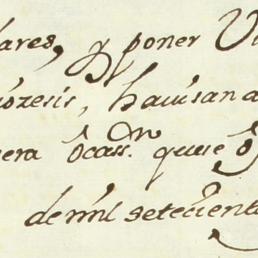 ares, y poner V
iozesis, hauisan a
era ocass.on que se
de mil setecient